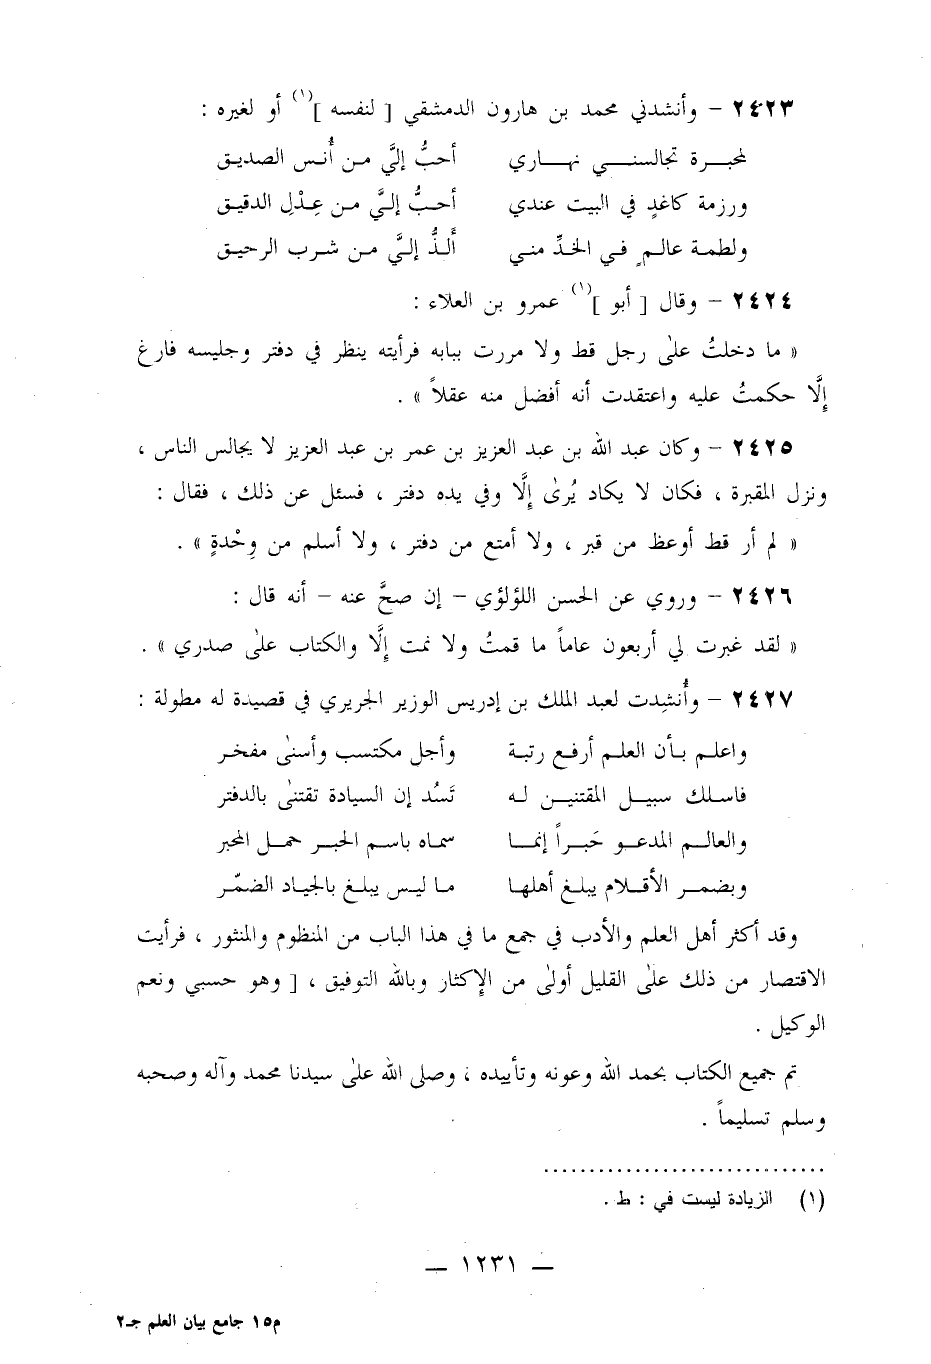 ٢٤٢٣ – وأنشدني محمد بن هارون الدمشقي [ لنفسه ](١) أو لغيره :
لمحبـرة تجالسنـي نهـاري أحبُّ إليَّ مـن أُنـس الصديـق
ورزمة كاغدٍ في البيت عندي أحـبُّ إليَّ مـن عِـدْلِ الدقيـق
ولطمـة عالـمٍ فـي الخدِّ منـي أَلـذُّ إليَّ مـن شرب الرحيـق
٢٤٢٤ – وقال [ أبو ](١) عمرو بن العلاء :
« ما دخلتُ علىٰ رجل قط ولا مررت ببابه فرأيته ينظر في دفتر وجليسه فارغ
إلَّا حكمتُ عليه واعتقدت أنه أفضل منه عقلاً » .
٢٤٢٥ – وكان عبد الله بن عبد العزيز بن عمر بن عبد العزيز لا يجالس الناس ،
ونزل المقبرة ، فكان لا يكاد يُرىٰ إلَّا وفي يده دفتر ، فسئل عن ذلك ، فقال :
« لم أر قط أوعظ من قبر ، ولا أمتع من دفتر ، ولا أسلم من وِحْدةٍ » .
٢٤٢٦ – وروي عن الحسن اللؤلؤي – إن صحَّ عنه – أنه قال :
« لقد غبرت لي أربعون عاماً ما قمتُ ولا نمت إلَّا والكتاب علىٰ صدري » .
٢٤٢٧ – وأُنشِدت لعبد الملك بن إدريس الوزير الجريري في قصيدة له مطولة :
واعلـم بـأن العلـم أرفـع رتبـة وأجل مكتسب وأسنىٰ مفخـر
فاسلك سبيـل المقتنيـن لـه تَسُد إن السيادة تقتنىٰ بالدفتر
والعالـم المدعـو حَبـراً إنمـا سماه باسـم الحبـر حمـل المحبر
وبضمـر الأقـلام يبلـغ أهلهـا ما ليـس يبلـغ بالجياد الضمّـر
وقد أكثر أهل العلم والأدب في جمع ما في هذا الباب من المنظوم والمنثور ، فرأيت
الاقتصار من ذلك علىٰ القليل أولىٰ من الإكثار وبالله التوفيق ، [ وهو حسبي ونعم
الوكيل .
تم جميع الكتاب بحمد الله وعونه وتأييده ، وصلى الله علىٰ سيدنا محمد وآله وصحبه
وسلم تسليماً .
...............................
(١) الزيادة ليست في : ط .
— ١٢٣١ —
م١٥ جامع بيان العلم جـ٢